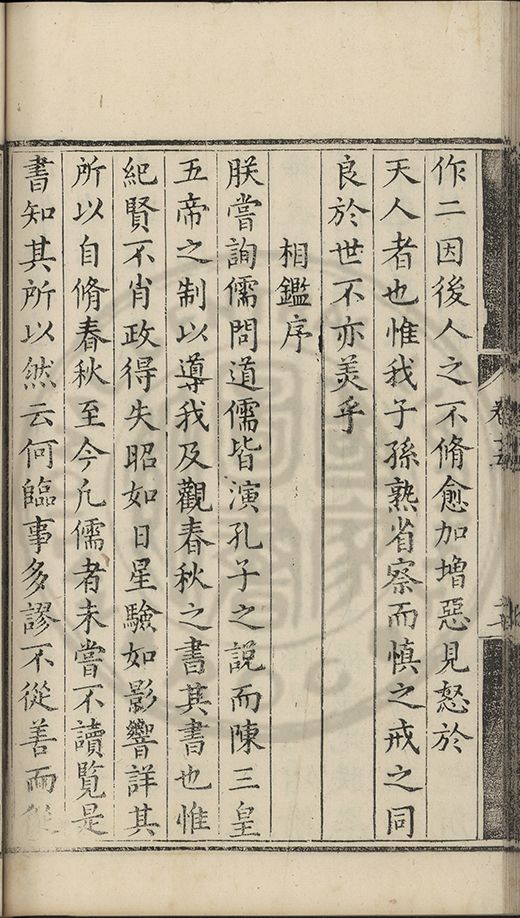 作二因後人之不脩愈加增惡見怒於
天人者也惟我子孫熟省察而慎之戒之同
良於世不亦美乎
相鑑序
朕嘗詢儒問道儒皆演孔子之說而陳三皇
五帝之制以導我及觀春秋之書其書也惟
紀賢不肖政得失昭如日星驗如影響詳其
所以自脩春秋至今凡儒者未嘗不讀覽是
書知其所以然云何臨事多謬不從善而從